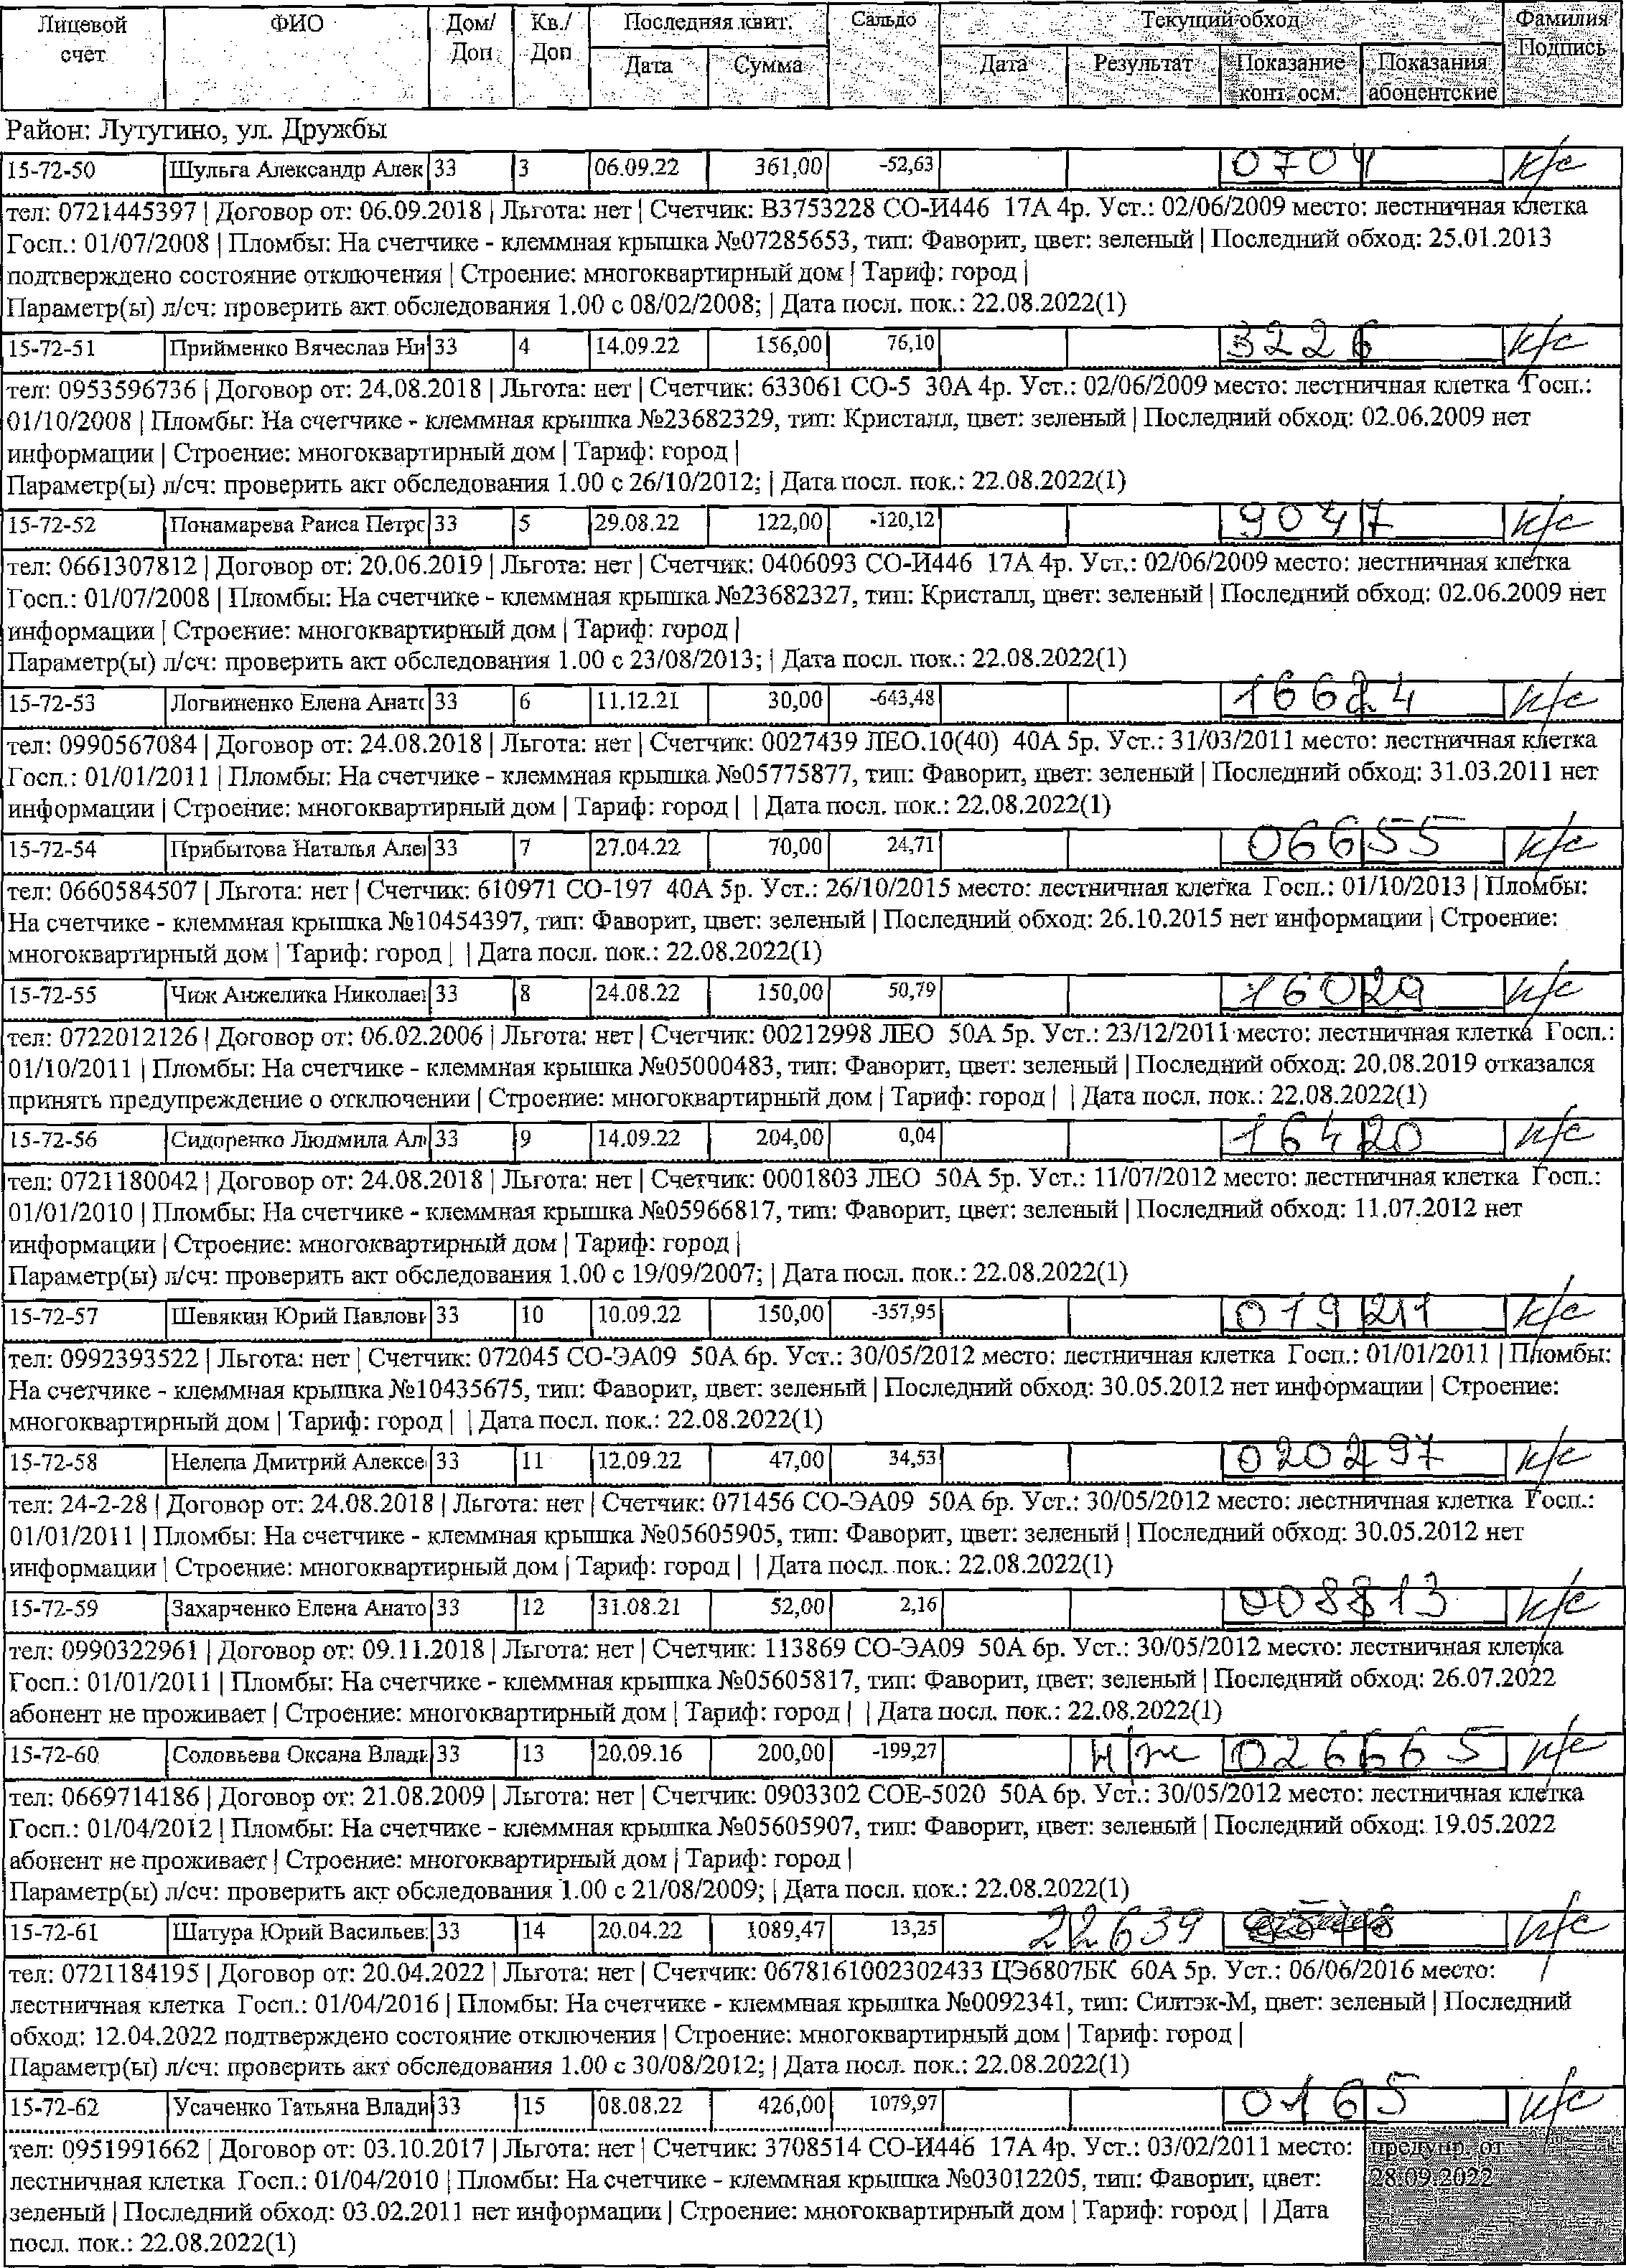 Лицевой счет ФИО Дом/Доп Кв./Доп Последняя квит. Сальдо Текущий обход Фамилия Подпись
Дата Сумма Дата Результат Показание конт. осм. Показания абонентские
Район: Лутугино, ул. Дружбы
15-72-50 Шульга Александр Алек 33 3 06.09.22 361,00 -52,63 0704 к/с
тел: 0721445397 | Договор от: 06.09.2018 | Льгота: нет | Счетчик: В3753228 СО-И446 17А 4р. Уст.: 02/06/2009 место: лестничная клетка
Госп.: 01/07/2008 | Пломбы: На счетчике - клеммная крышка №07285653, тип: Фаворит, цвет: зеленый | Последний обход: 25.01.2013
подтверждено состояние отключения | Строение: многоквартирный дом | Тариф: город |
Параметр(ы) л/сч: проверить акт обследования 1.00 с 08/02/2008; | Дата посл. пок.: 22.08.2022(1)
15-72-51 Прийменко Вячеслав Ни 33 4 14.09.22 156,00 76,10 3226 к/с
тел: 0953596736 | Договор от: 24.08.2018 | Льгота: нет | Счетчик: 633061 СО-5 30А 4р. Уст.: 02/06/2009 место: лестничная клетка Госп.:
01/10/2008 | Пломбы: На счетчике - клеммная крышка №23682329, тип: Кристалл, цвет: зеленый | Последний обход: 02.06.2009 нет
информации | Строение: многоквартирный дом | Тариф: город |
Параметр(ы) л/сч: проверить акт обследования 1.00 с 26/10/2012; | Дата посл. пок.: 22.08.2022(1)
15-72-52 Понамарева Раиса Петрс 33 5 29.08.22 122,00 -120,12 9047 к/с
тел: 0661307812 | Договор от: 20.06.2019 | Льгота: нет | Счетчик: 0406093 СО-И446 17А 4р. Уст.: 02/06/2009 место: лестничная клетка
Госп.: 01/07/2008 | Пломбы: На счетчике - клеммная крышка №23682327, тип: Кристалл, цвет: зеленый | Последний обход: 02.06.2009 нет
информации | Строение: многоквартирный дом | Тариф: город |
Параметр(ы) л/сч: проверить акт обследования 1.00 с 23/08/2013; | Дата посл. пок.: 22.08.2022(1)
15-72-53 Логвиненко Елена Анатс 33 6 11.12.21 30,00 -643,48 16624 к/с
тел: 0990567084 | Договор от: 24.08.2018 | Льгота: нет | Счетчик: 0027439 ЛЕО.10(40) 40А 5р. Уст.: 31/03/2011 место: лестничная клетка
Госп.: 01/01/2011 | Пломбы: На счетчике - клеммная крышка №05775877, тип: Фаворит, цвет: зеленый | Последний обход: 31.03.2011 нет
информации | Строение: многоквартирный дом | Тариф: город | | Дата посл. пок.: 22.08.2022(1)
15-72-54 Прибытова Наталья Але 33 7 27.04.22 70,00 24,71 06655 к/с
тел: 0660584507 | Льгота: нет | Счетчик: 610971 СО-197 40А 5р. Уст.: 26/10/2015 место: лестничная клетка Госп.: 01/10/2013 | Пломбы:
На счетчике - клеммная крышка №10454397, тип: Фаворит, цвет: зеленый | Последний обход: 26.10.2015 нет информации | Строение:
многоквартирный дом | Тариф: город | | Дата посл. пок.: 22.08.2022(1)
15-72-55 Чиж Анжелика Николае 33 8 24.08.22 150,00 50,79 16029 к/с
тел: 0722012126 | Договор от: 06.02.2006 | Льгота: нет | Счетчик: 00212998 ЛЕО 50А 5р. Уст.: 23/12/2011 место: лестничная клетка Госп.:
01/10/2011 | Пломбы: На счетчике - клеммная крышка №05000483, тип: Фаворит, цвет: зеленый | Последний обход: 20.08.2019 отказался
принять предупреждение о отключении | Строение: многоквартирный дом | Тариф: город | | Дата посл. пок.: 22.08.2022(1)
15-72-56 Сидоренко Людмила Ал 33 9 14.09.22 204,00 0,04 16420 к/с
тел: 0721180042 | Договор от: 24.08.2018 | Льгота: нет | Счетчик: 0001803 ЛЕО 50А 5р. Уст.: 11/07/2012 место: лестничная клетка Госп.:
01/01/2010 | Пломбы: На счетчике - клеммная крышка №05966817, тип: Фаворит, цвет: зеленый | Последний обход: 11.07.2012 нет
информации | Строение: многоквартирный дом | Тариф: город |
Параметр(ы) л/сч: проверить акт обследования 1.00 с 19/09/2007; | Дата посл. пок.: 22.08.2022(1)
15-72-57 Шевякин Юрий Павлови 33 10 10.09.22 150,00 -357,95 019211 к/с
тел: 0992393522 | Льгота: нет | Счетчик: 072045 СО-ЭА09 50А 6р. Уст.: 30/05/2012 место: лестничная клетка Госп.: 01/01/2011 | Пломбы:
На счетчике - клеммная крышка №10435675, тип: Фаворит, цвет: зеленый | Последний обход: 30.05.2012 нет информации | Строение:
многоквартирный дом | Тариф: город | | Дата посл. пок.: 22.08.2022(1)
15-72-58 Нелепа Дмитрий Алексе 33 11 12.09.22 47,00 34,53 020297 к/с
тел: 24-2-28 | Договор от: 24.08.2018 | Льгота: нет | Счетчик: 071456 СО-ЭА09 50А 6р. Уст.: 30/05/2012 место: лестничная клетка Госп.:
01/01/2011 | Пломбы: На счетчике - клеммная крышка №05605905, тип: Фаворит, цвет: зеленый | Последний обход: 30.05.2012 нет
информации | Строение: многоквартирный дом | Тариф: город | | Дата посл. пок.: 22.08.2022(1)
15-72-59 Захарченко Елена Анато 33 12 31.08.21 52,00 2,16 008813 к/с
тел: 0990322961 | Договор от: 09.11.2018 | Льгота: нет | Счетчик: 113869 СО-ЭА09 50А 6р. Уст.: 30/05/2012 место: лестничная клетка
Госп.: 01/01/2011 | Пломбы: На счетчике - клеммная крышка №05605817, тип: Фаворит, цвет: зеленый | Последний обход: 26.07.2022
абонент не проживает | Строение: многоквартирный дом | Тариф: город | | Дата посл. пок.: 22.08.2022(1)
15-72-60 Соловьева Оксана Влади 33 13 20.09.16 200,00 -199,27 н/ж 026665 к/с
тел: 0669714186 | Договор от: 21.08.2009 | Льгота: нет | Счетчик: 0903302 СОЕ-5020 50А 6р. Уст.: 30/05/2012 место: лестничная клетка
Госп.: 01/04/2012 | Пломбы: На счетчике - клеммная крышка №05605907, тип: Фаворит, цвет: зеленый | Последний обход: 19.05.2022
абонент не проживает | Строение: многоквартирный дом | Тариф: город |
Параметр(ы) л/сч: проверить акт обследования 1.00 с 21/08/2009; | Дата посл. пок.: 22.08.2022(1)
15-72-61 Шатура Юрий Васильев 33 14 20.04.22 1089,47 13,25 22639 к/с
тел: 0721184195 | Договор от: 20.04.2022 | Льгота: нет | Счетчик: 0678161002302433 ЦЭ6807БК 60А 5р. Уст.: 06/06/2016 место:
лестничная клетка Госп.: 01/04/2016 | Пломбы: На счетчике - клеммная крышка №0092341, тип: Силтэк-М, цвет: зеленый | Последний
обход: 12.04.2022 подтверждено состояние отключения | Строение: многоквартирный дом | Тариф: город |
Параметр(ы) л/сч: проверить акт обследования 1.00 с 30/08/2012; | Дата посл. пок.: 22.08.2022(1)
15-72-62 Усаченко Татьяна Влади 33 15 08.08.22 426,00 1079,97 0165 к/с
тел: 0951991662 | Договор от: 03.10.2017 | Льгота: нет | Счетчик: 3708514 СО-И446 17А 4р. Уст.: 03/02/2011 место:
лестничная клетка Госп.: 01/04/2010 | Пломбы: На счетчике - клеммная крышка №03012205, тип: Фаворит, цвет:
зеленый | Последний обход: 03.02.2011 нет информации | Строение: многоквартирный дом | Тариф: город | | Дата
посл. пок.: 22.08.2022(1)
предупр. от
28.09.2022